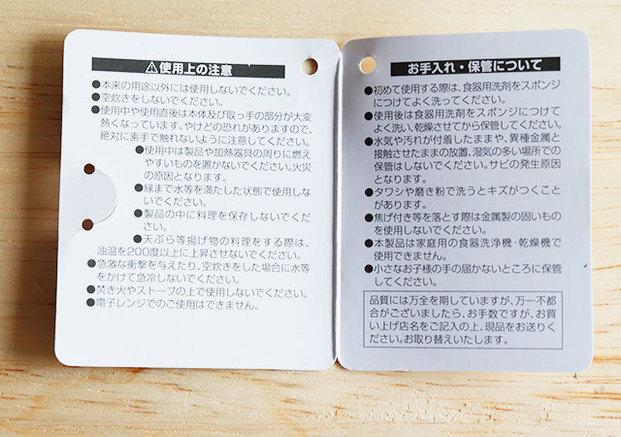 ⚠使用上の注意
●本来の用途以外には使用しないでください。
●空炊きをしないでください。
●使用中や使用直後は本体及び取っ手の部分が大変
熱くなっています。やけどの恐れがありますので、
絶対に素手で触れないように注意してください。
●使用中は製品や加熱器具の周りに燃え
やすいものを置かないでください。火災
の原因となります。
●縁まで水等を満たした状態で使用しな
いでください。
●製品の中に料理を保存しないでくだ
さい。
●天ぷら等揚げ物の料理をする際は、
油温を200度以上に上昇させないでください。
●急激な衝撃を与えたり、空炊きをした場合に水等
をかけて急冷しないでください。
●焚き火やストーブの上で使用しないでください。
●電子レンジでのご使用はできません。
お手入れ・保管について
●初めて使用する際は、食器用洗剤をスポンジ
につけてよく洗ってください。
●使用後は食器用洗剤をスポンジにつけて
よく洗い、乾燥させてから保管してください。
●水気や汚れが付着したままや、異種金属と
接触させたままの放置、湿気の多い場所での
保管はしないでください。サビの発生原因
となります。
●タワシや磨き粉で洗うとキズがつくこと
があります。
●焦げ付き等を落とす際は金属製の固いもの
を使用しないでください。
●本製品は家庭用の食器洗浄機・乾燥機で
使用できません。
●小さなお子様の手の届かないところに保管
してください。
品質には万全を期していますが、万一不都
合がございましたら、お手数ですが、お買
い上げ店名をご記入の上、現品をお送りく
ださい。お取り替えいたします。